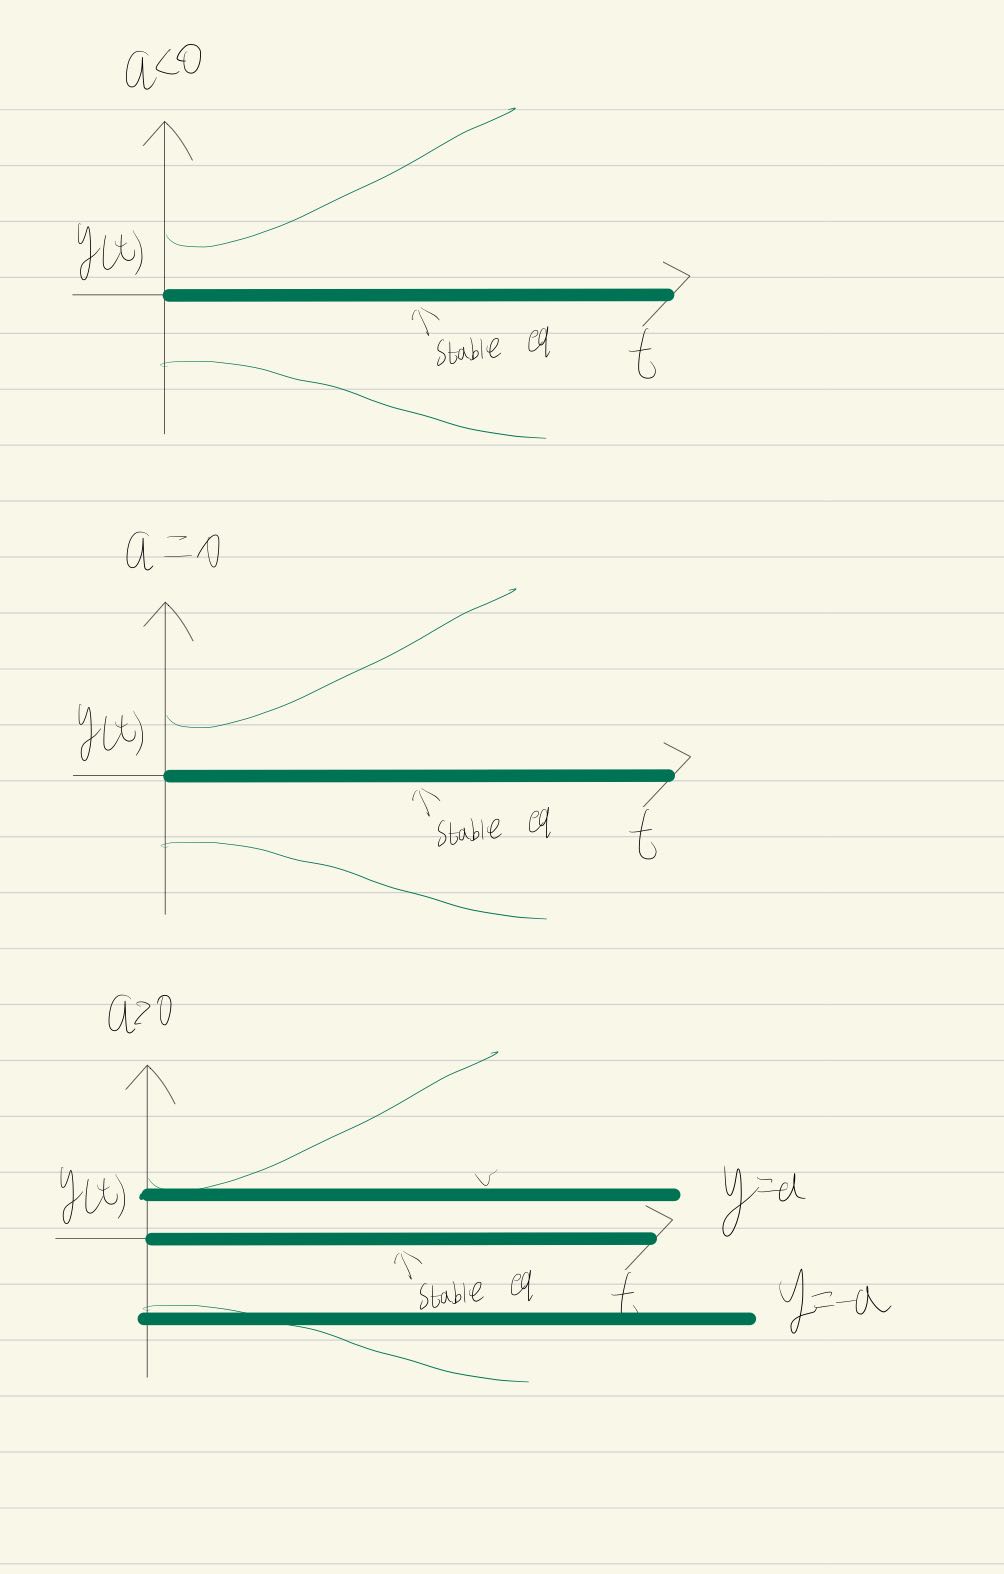 a<0
y(t)
stable eq
t
a=0
y(t)
stable eq
t
a>0
y(t)
y=a
stable eq
t
y=-a